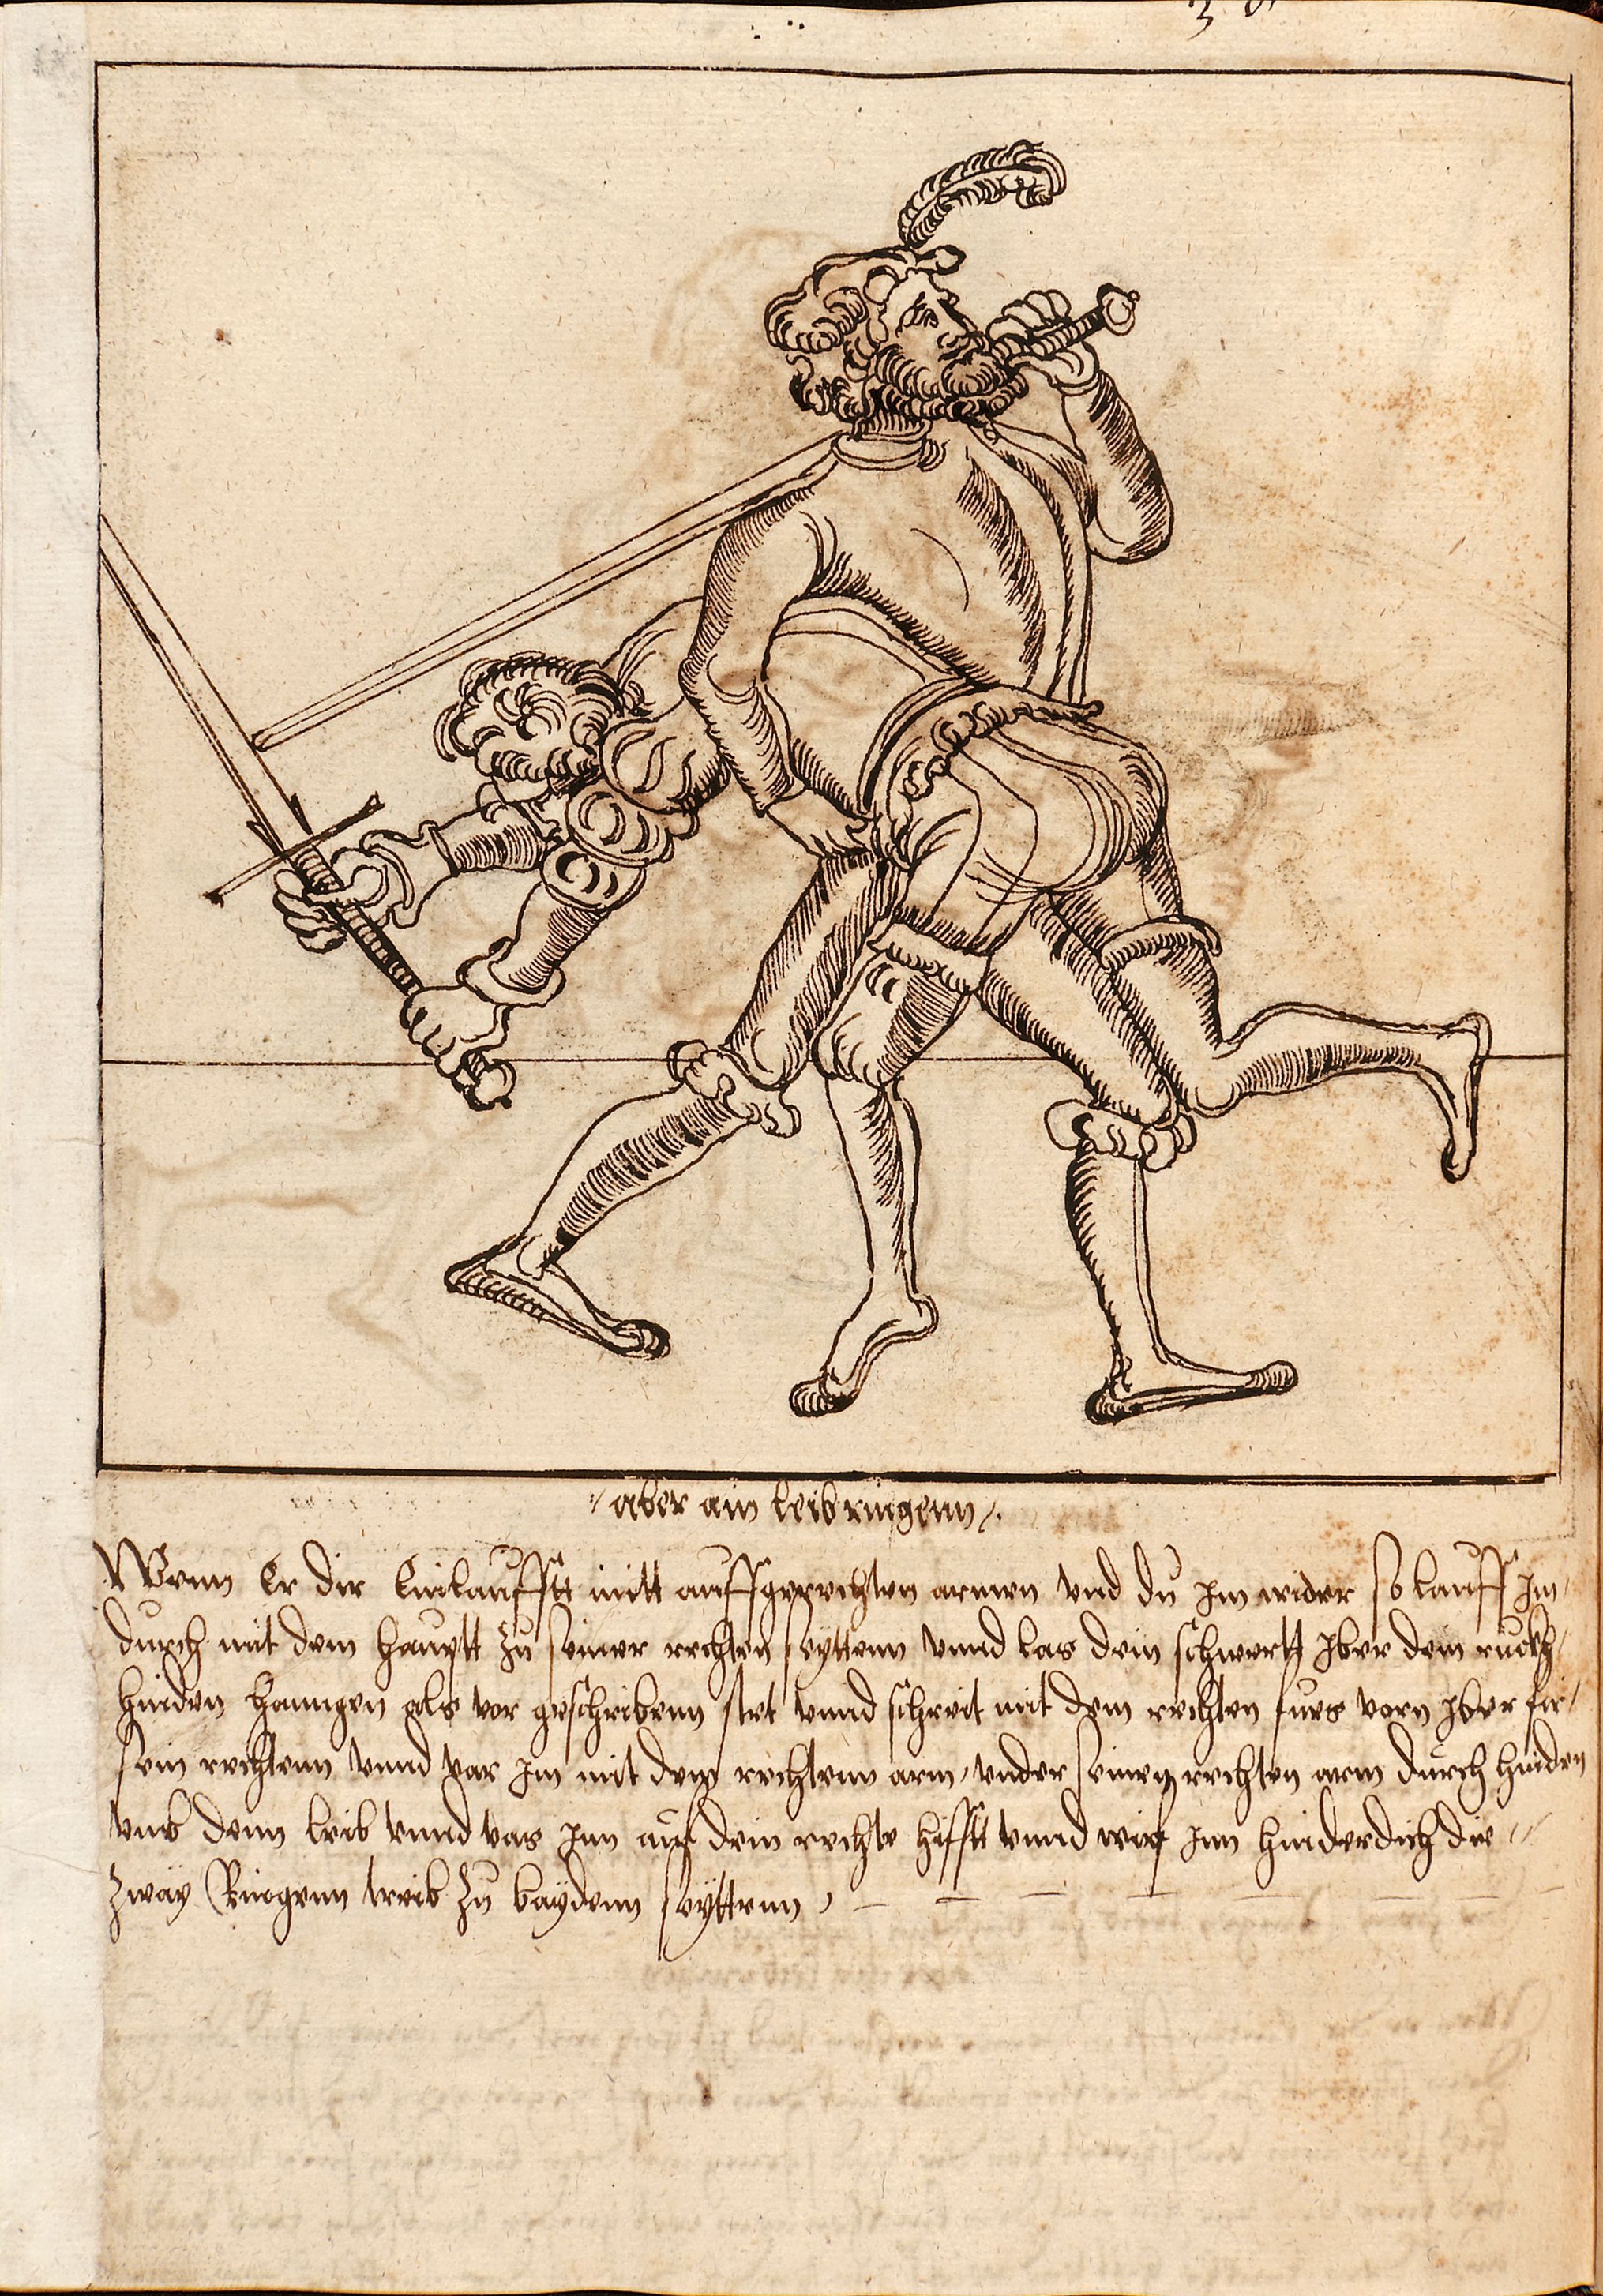 aber ain leibringenn
Wenn Er dir Einlaufftt mitt auffgerechten armen vnd du jm wider so lauff jm
durch mit dem hauptt zu seiner rechten seyttenn vnnd las dein schwertt jber dein ruckh
hinden hanngen als vor geschribenn stet vnnd schreit mit dem rechten fues vorn jber fir
sein rechtenn vnnd var jm mit dem rechtenn arm vnder seinen rechten arm durch hinden
vmb denn leib vnnd vas jnn auf dein rechte hifftt vnnd wirf jnn hinderdich die
zway Ringenn treib zu baydenn seyttenn